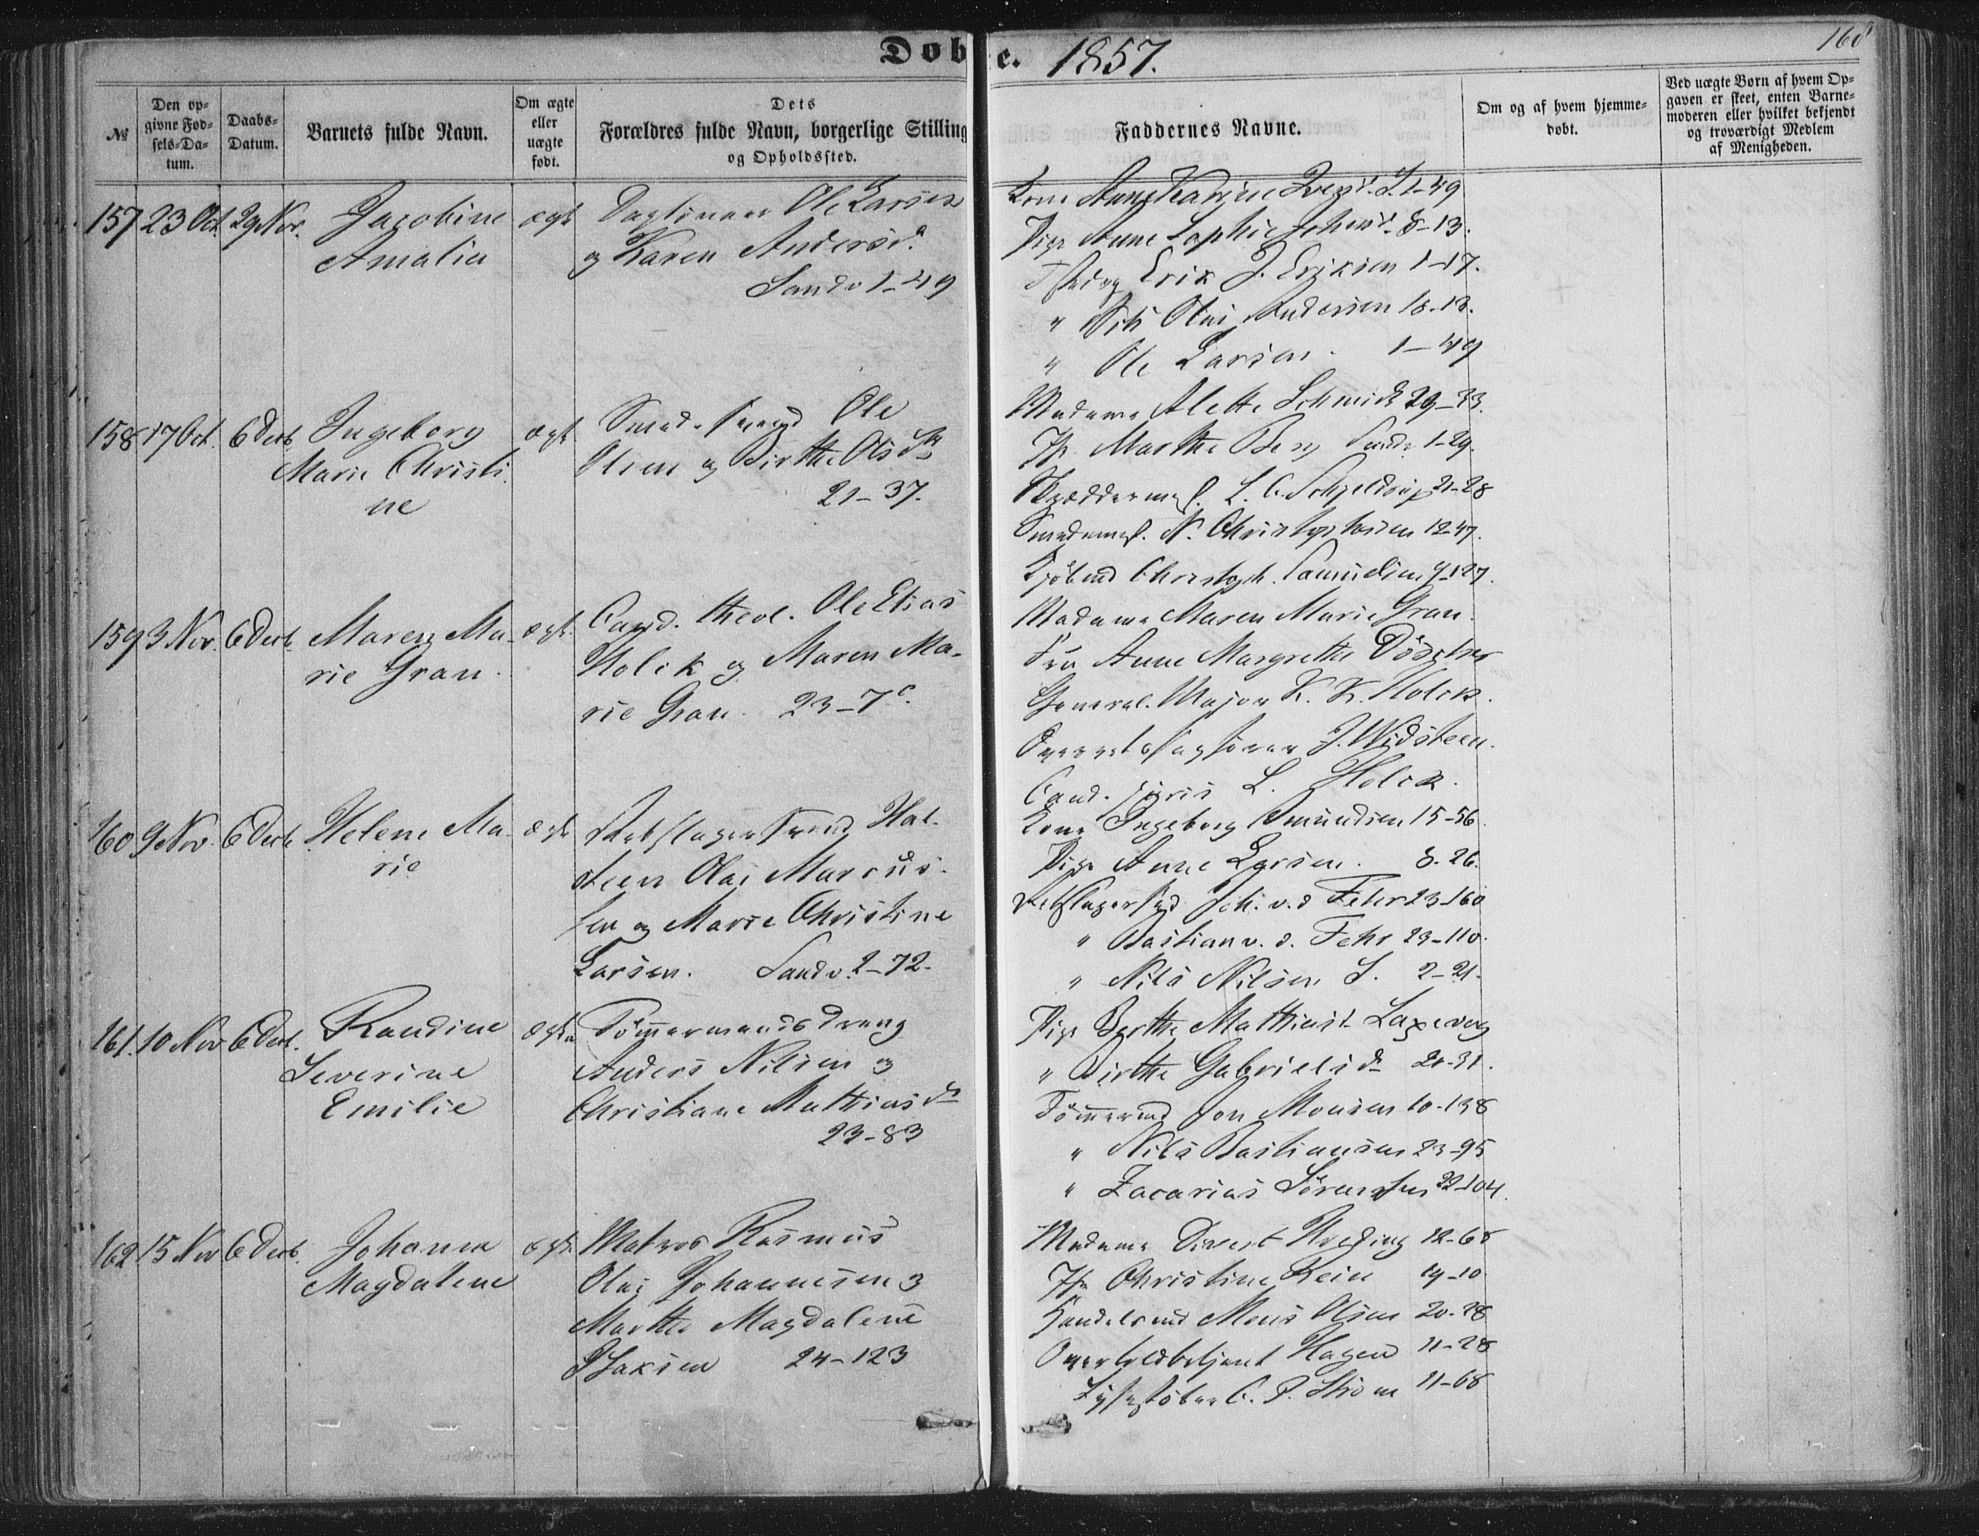 Døbte. 1857.
168
№
Den opgivne Fødsels-Datum.
Daabs-Datum.
Barnets fulde Navn.
Om ægte eller uægte født.
Dets Forældres fulde Navn, borgerlige Stilling og Opholdssted.
Faddernes Navne.
Om og af hvem hjemmedøbt.
Ved uægte Børn af hvem Opgaven er skeet, enten Barnemoderen eller hvilket bekjendt og troværdigt Medlem af Menigheden.
157 23 Oct. 29 Nov. Jacobine ægte Ole Larsen
Amalia og Karen Andersd.
Sandv 1-49
Kone Anne Karine 1-49
Pige Anne Sophie 8-13.
Erik J. Eriksen 1-17.
" Olai Andersen 18-13.
" Ole Larsen. 1-49
158 17 Oct. 6 Decb. Ingeborg ægte Smedesvend Ole
Marie Christi Olsen og Birthe Olsdr
ne 21-37.
Madame Alette Schmidt 29-23.
Jfr. Marthe Berg Sandv 1-29.
Skræddermest. L. C. Schjeldrup 21-28
Smedemest. N. Christophersen 12-47.
Kjøbmd Christoph. Samuelsen 9-127.
159 3 Nov. 6 Decb. Maren Ma- ægte Cand. theol. Ole Elias
rie Gran. Holck og Maren Ma-
rie Gran. 23-7c.
Madame Maren Marie Gran.
Fru Anne Margrethe
General-Major K. K. Holck.
Overretssagfører J. Widsteen.
Cand. juris L. Holck.
160 9 Nov. 6 Decb. Helene Ma- ægte Rebslagersvend Hal-
rie steen Olai Marcus-
sen og Marie Christine
Larsen. Sandv. 2-72.
Kone Ingeborg Amundsen 15-56.
Pige Anne Larsen. 8-26.
Rebslagersvd Joh. v. d Fehr 23-160
" Bastian v. d. Fehr 23-110.
" Nils Nilsen S. 2-21.
161. 10 Nov 6 Decb. Randine ægte Tømmermandsdreng
Severine Anders Nilsen og
Emilie Christiane Mathiasdr
23-83
Pige Berthe Mathiasd. Laxevog
" Birthe Gabrielsdr 21-31.
Tømmermd Jon Monsen 10-138
" Nils Bastiansen 23-95
" Zacarias Sørensen 22-104.
162 15 Nov 6 Decb. Johanna ægte Matros Rasmus
Magdalene Olai Johannesen og
Marthe Magdalene
Isaksen 24-123
Madame Divert 12-68
Jfr Christine Rein 19-10.
Handelsmd Mons Olsen 20-28
Overtoldbetjent Hagen 11-28
Lysestøber C. P. Strøm 11-68